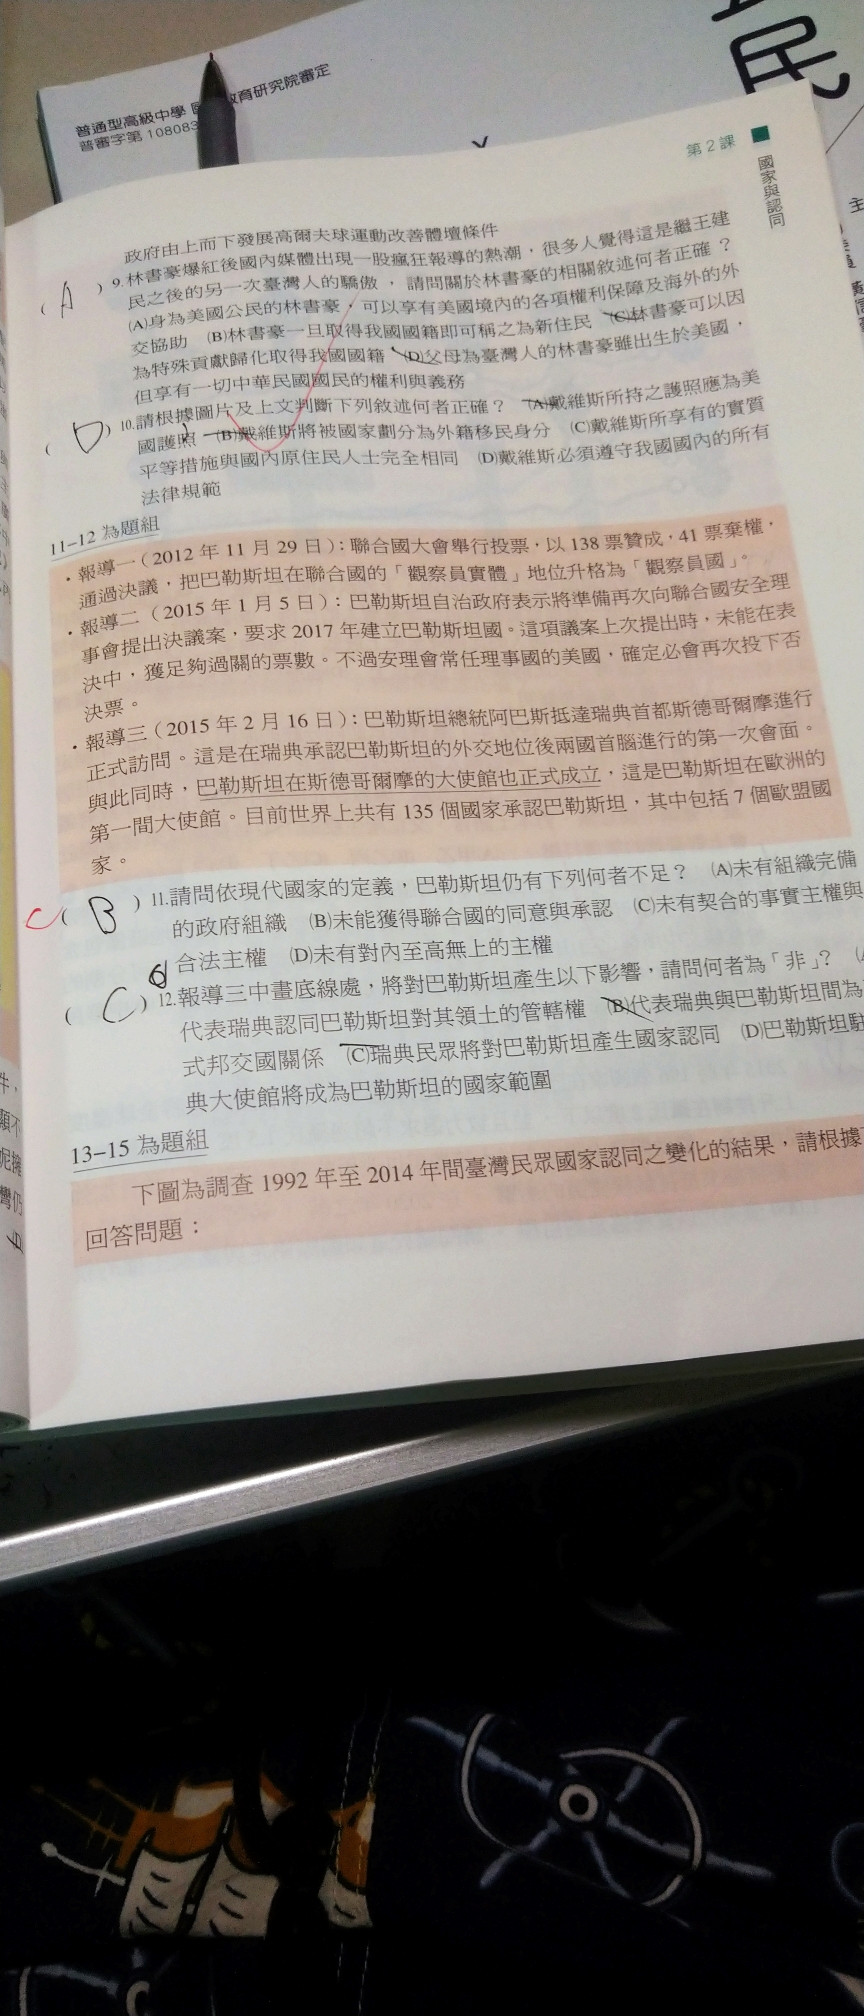 民
普通型高級中學 國 教育研究院審定
普審字第 108083
第2課
國家與認同
政府由上而下發展高爾夫球運動改善體壇條件
( A ) 9.林書豪爆紅後國內媒體出現一股瘋狂報導的熱潮，很多人覺得這是繼王建
民之後的另一次臺灣人的驕傲，請問關於林書豪的相關敘述何者正確？
(A)身為美國公民的林書豪，可以享有美國境內的各項權利保障及海外的外
交協助 (B)林書豪一旦取得我國國籍即可稱之為新住民 (C)林書豪可以因
為特殊貢獻歸化取得我國國籍 (D)父母為臺灣人的林書豪雖出生於美國，
但享有一切中華民國國民的權利與義務
( D ) 10.請根據圖片及上文判斷下列敘述何者正確？ (A)戴維斯所持之護照應為美
國護照 (B)戴維斯將被國家劃分為外籍移民身分 (C)戴維斯所享有的實質
平等措施與國內原住民人士完全相同 (D)戴維斯必須遵守我國國內的所有
法律規範
11-12 為題組
・報導一（2012 年 11 月 29 日）：聯合國大會舉行投票，以 138 票贊成，41 票棄權，
通過決議，把巴勒斯坦在聯合國的「觀察員實體」地位升格為「觀察員國」。
・報導二（2015 年 1 月 5 日）：巴勒斯坦自治政府表示將準備再次向聯合國安全理
事會提出決議案，要求 2017 年建立巴勒斯坦國。這項議案上次提出時，未能在表
決中，獲足夠過關的票數。不過安理會常任理事國的美國，確定必會再次投下否
決票。
・報導三（2015 年 2 月 16 日）：巴勒斯坦總統阿巴斯抵達瑞典首都斯德哥爾摩進行
正式訪問。這是在瑞典承認巴勒斯坦的外交地位後兩國首腦進行的第一次會面。
與此同時，巴勒斯坦在斯德哥爾摩的大使館也正式成立，這是巴勒斯坦在歐洲的
第一間大使館。目前世界上共有 135 個國家承認巴勒斯坦，其中包括 7 個歐盟國
家。
( B ) 11.請問依現代國家的定義，巴勒斯坦仍有下列何者不足？ (A)未有組織完備
的政府組織 (B)未能獲得聯合國的同意與承認 (C)未有契合的事實主權與
合法主權 (D)未有對內至高無上的主權
( C ) 12.報導三中畫底線處，將對巴勒斯坦產生以下影響，請問何者為「非」？
代表瑞典認同巴勒斯坦對其領土的管轄權 (B)代表瑞典與巴勒斯坦間為
式邦交國關係 (C)瑞典民眾將對巴勒斯坦產生國家認同 (D)巴勒斯坦駐
典大使館將成為巴勒斯坦的國家範圍
13-15 為題組
下圖為調查 1992 年至 2014 年間臺灣民眾國家認同之變化的結果，請根據
回答問題：